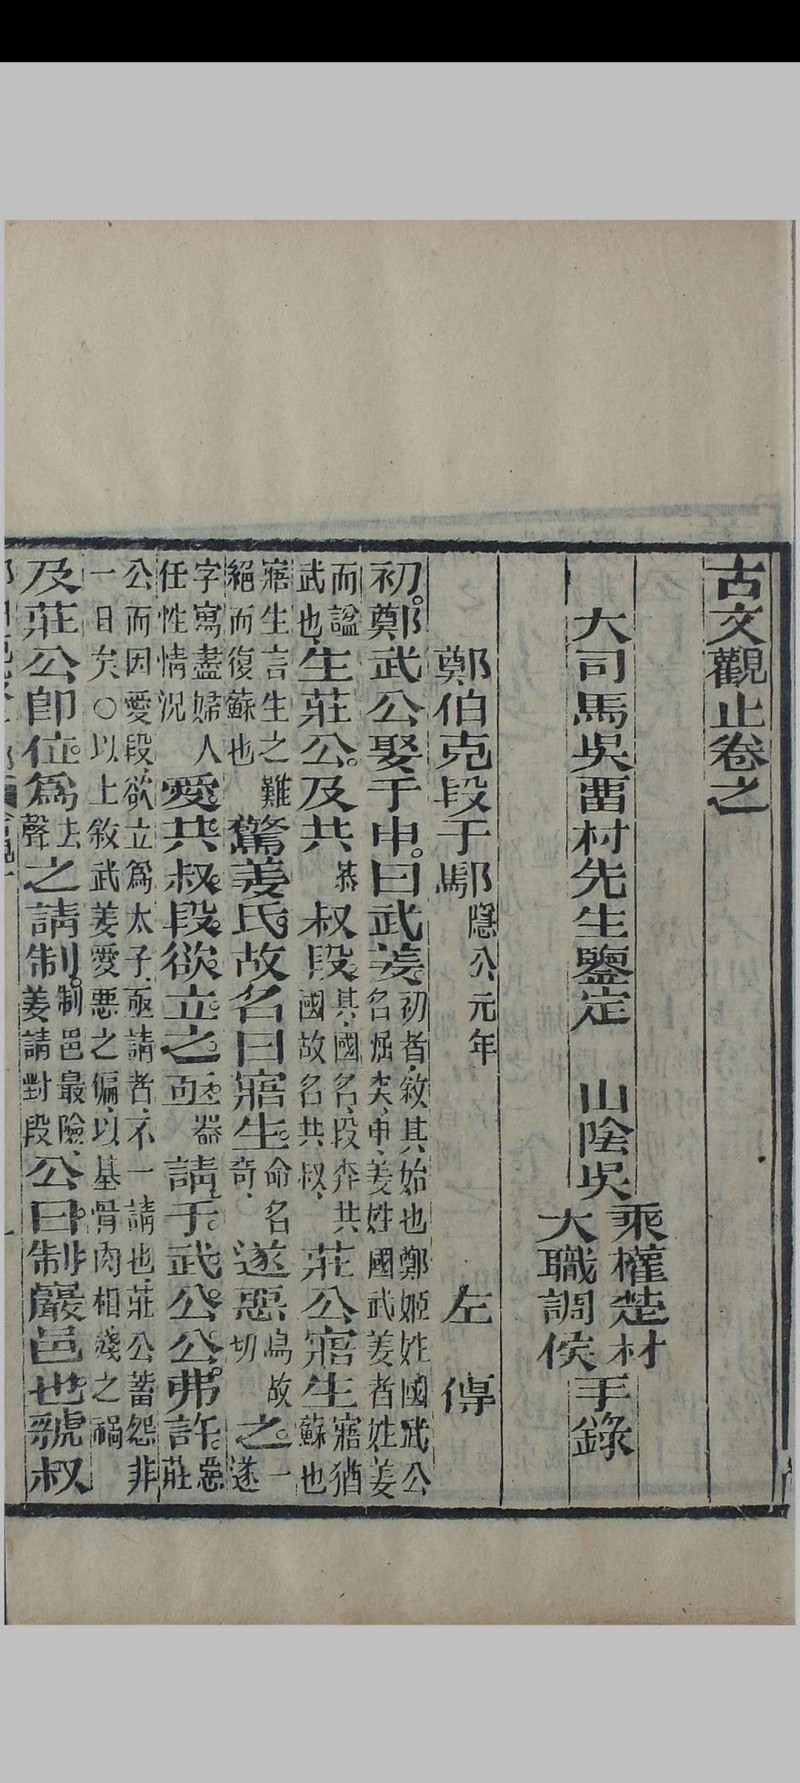 古文觀止卷之一
大司馬吳畱村先生鑒定　山陰吳乘權楚材大職調侯手錄
鄭伯克段于鄢 隱公元年　左傳
初。鄭武公娶于申。曰武姜。初者、敘其始也、鄭姬姓國、武公名掘突、申、姜姓國、武姜者、姓姜
而諡武也、生莊公。及共恭叔段。其、國名、段奔共國、故名共叔、莊公寤生寤猶蘇也
寤生言生之難絕而復蘇也驚姜氏。故名曰寤生。命名奇、遂惡烏故切之。一遂
字寫盡婦人任性情況愛共叔段。欲立之。亟去器請于武公。公弗許。惡莊
公而因愛段、欲立爲太子、亟請者、不一請也、莊公蓄怨非一日矣○以上敘武姜愛惡之偏、以基骨肉相殘之禍
及莊公卽位。爲去聲之請制。制邑最險、姜請對段公曰。制巖邑也。虢叔